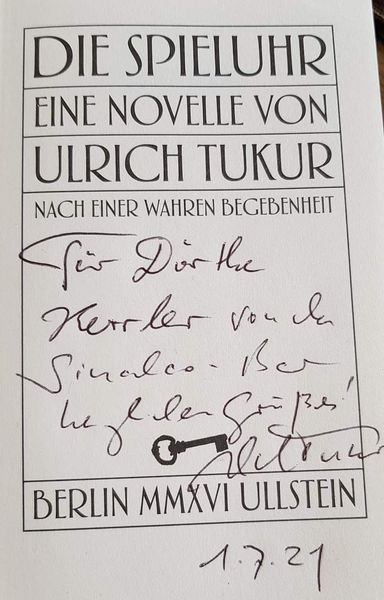 DIE SPIELUHR
EINE NOVELLE VON
ULRICH TUKUR
NACH EINER WAHREN BEGEBENHEIT
Für Dörthe
von der
Sinalco-Bar
Grüßen!
BERLIN MMXVI ULLSTEIN
1.7.21